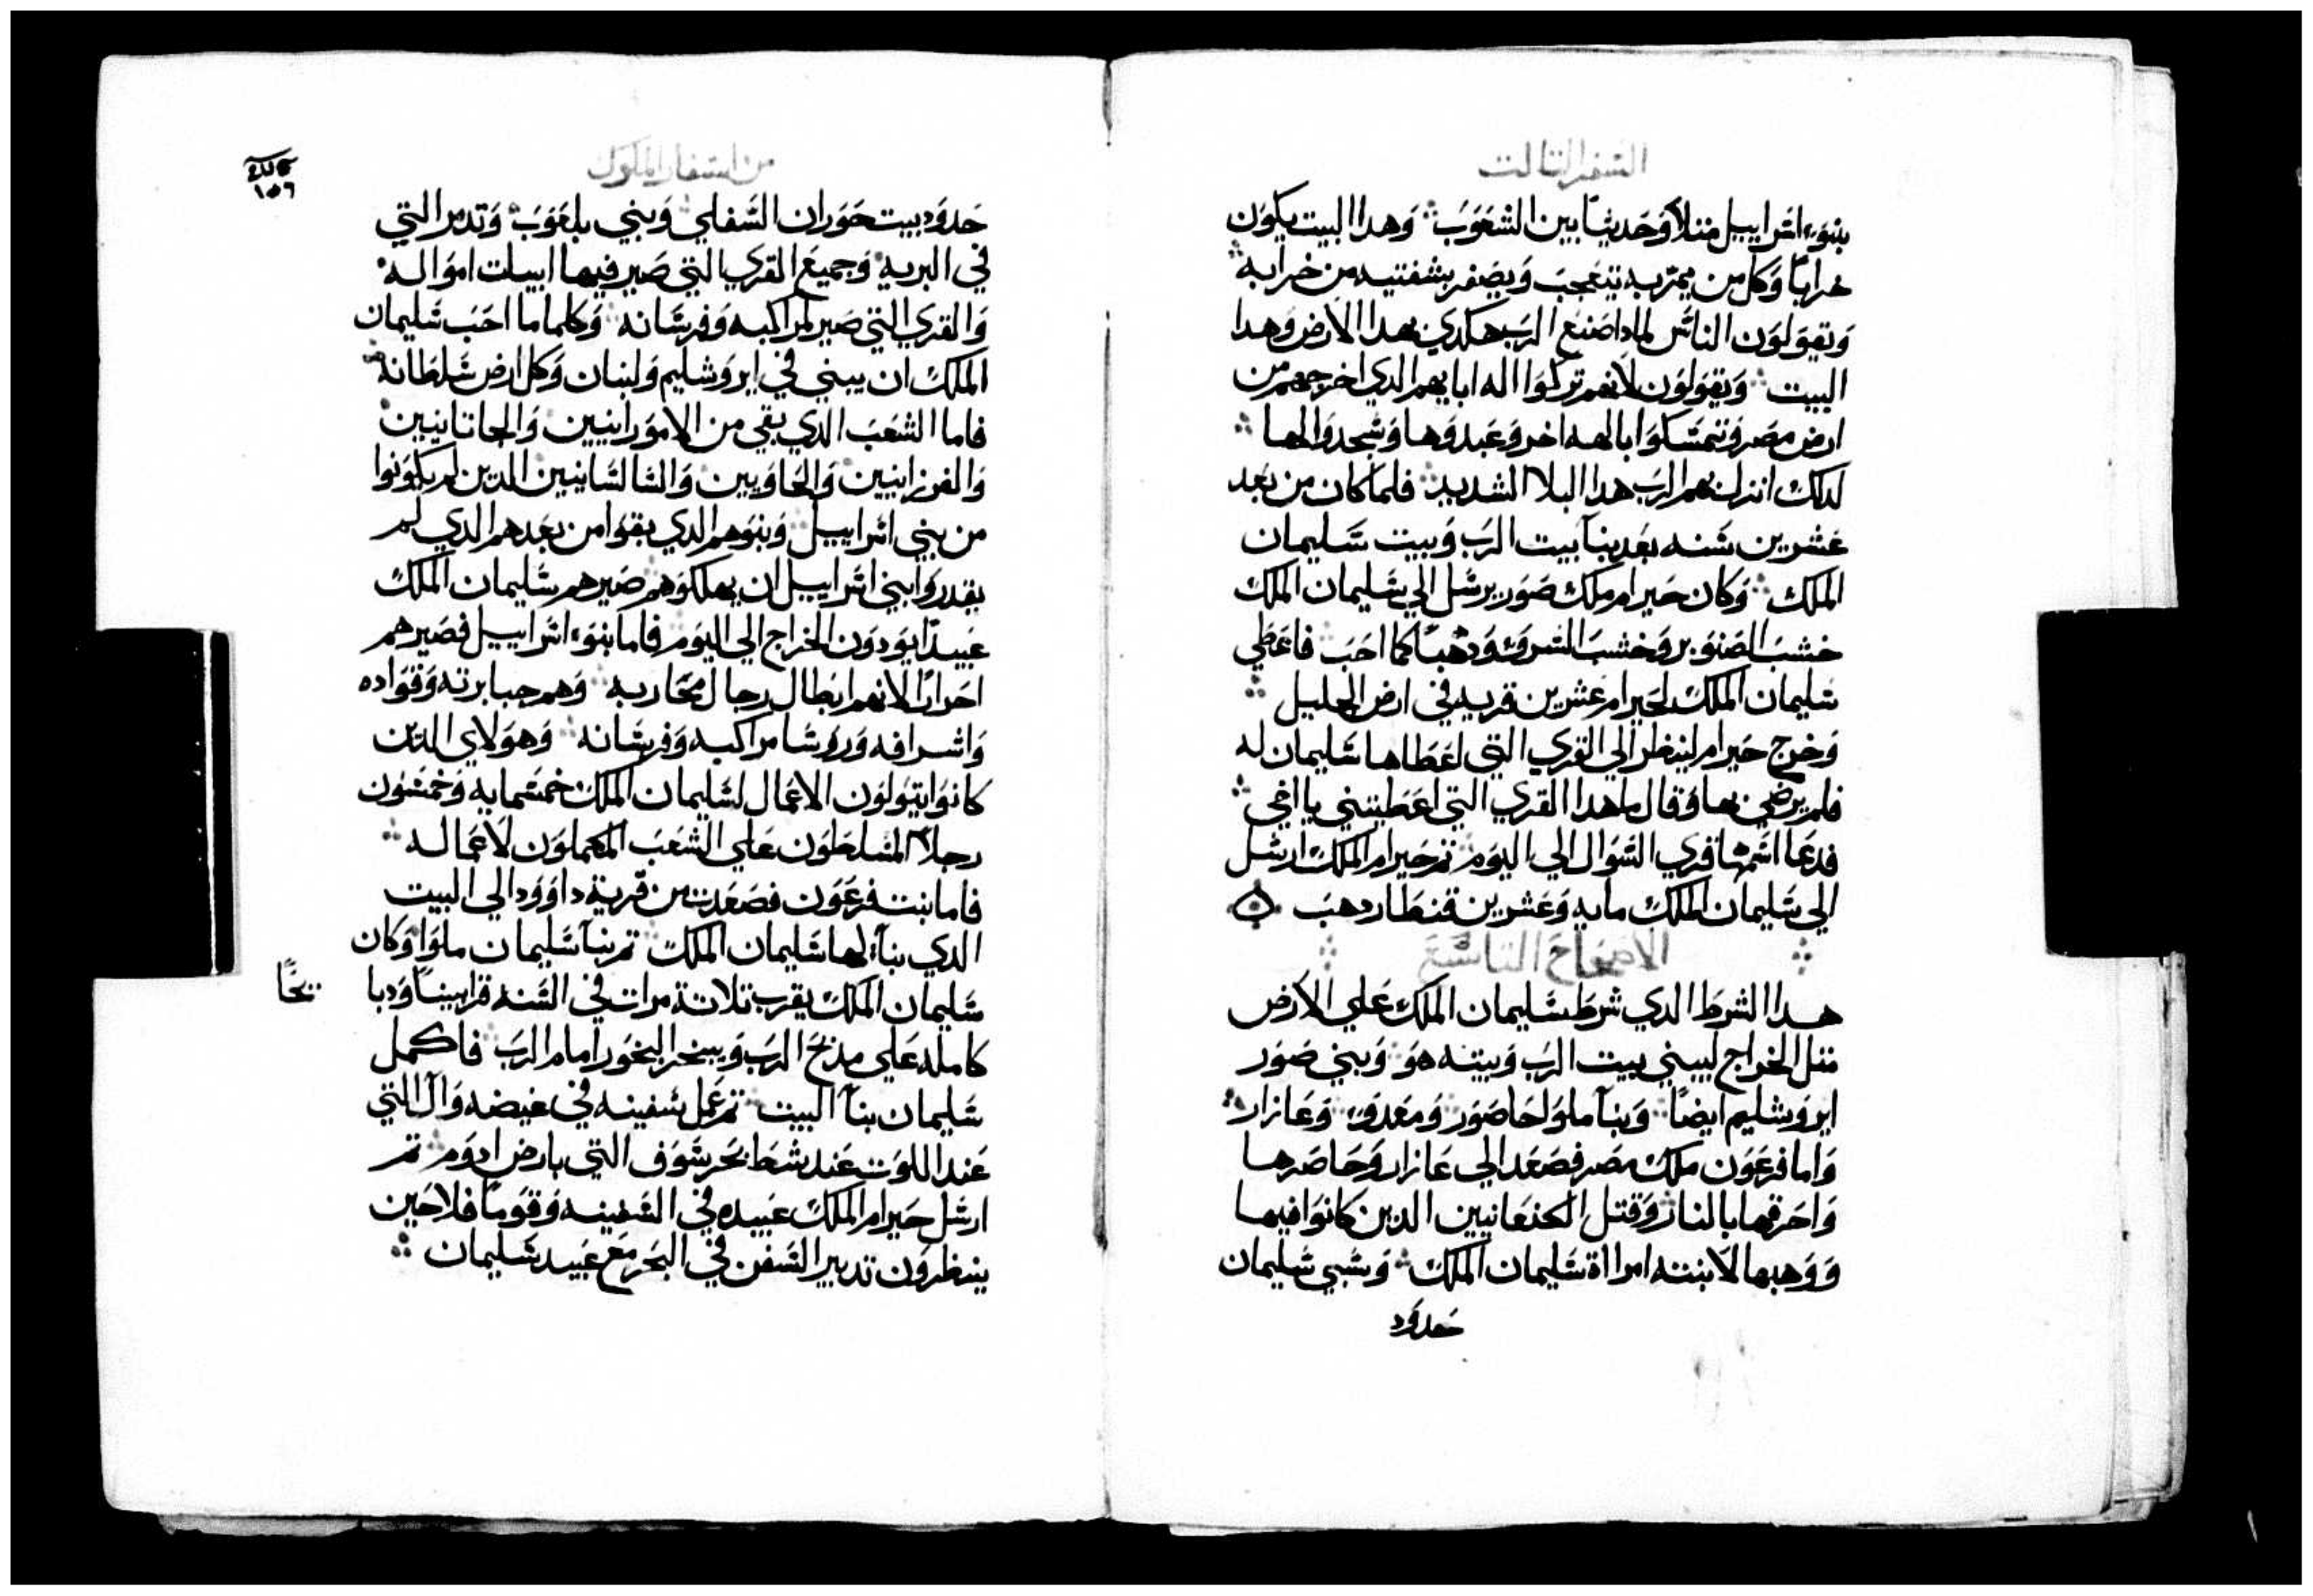 السفر التالت
بنوء اسراييل متلاً وحديثاً بين الشعوب وهدا البيت يكون
خراباً وكل من يمر به يتعجب ويصفر بشفتيه من خرابه
وتقولون الناس لمادا صنع الرب هكدي بهدا الارض وهدا
البيت ويقولون لانهم تركوا اله ابايهم الدي اخرجهم من
ارض مصر وتمسكوا بالهه اخر وعبدوها وسجدوا لها
لدلك انزل بهم الرب هدا البلا الشديد فلما كان من بعد
عشرين سنه بعد بنا بيت الرب وبيت سليمان
الملك وكان حيرام ملك صور يرسل الي سليمان الملك
خشب الصنوبر وخشب السرو ودهباً كما احب فاعطي
سليمان الملك لحيرام عشرين قريه في ارض الجليل
وخرج حيرام لينظر الي القري التي اعطاها سليمان له
فلم يرضي بها وقال ما هدا القري التي اعطيتني يا اخي
فدعا اسمها قري السوال الي اليوم تم حيرام الملك ارسل
الي سليمان الملك مايه وعشرين قنطار دهب
الاصحاح التاسع
هدا الشرط الدي شرط سليمان الملك علي الارض
متل الخراج ليبني بيت الرب وبيته هو وبني صور
ايروشليم ايضاً وبنا ملوا حاصور ومعدو وعازار
واما فرعون ملك مصر فصعد الي عازار وحاصرها
واحرقها بالنار وقتل الكنعانيين الدين كانوا فيها
ووهبها لابنته امرااة سليمان الملك وسبي سليمان
حدود
من اسفار الملوك
١٥٦
حدود بيت حوران السفلي وبني بلعوب وتدمر التي
في البريه وجميع القري التي صير فيها ابيات امواله
والقري التي صير لمراكبه وفرسانه وكلما ما احب سليمان
الملك ان يبني في ايروشليم ولبنان وكل ارض سلطانه
فاما الشعب الدي بقي من الامورانيين والحاتانيين
والفرزانيين والحاويين والسالسانيين الدين لم يكونوا
من بني اسراييل وبنوهم الدي بقوا من بعدهم الدي لم
يقدروا بني اسراييل ان يهلكوهم صيرهم سليمان الملك
عبيداً يودون الخراج الي اليوم فاما بنوء اسراييل فصيرهم
احراراً لانهم ابطال رجال محاربه وهم جبابرته وقواده
واشرافه وروسا مراكبه وفرسانه وهولاي الدين
كانوا يتولون الاعمال لسليمان الملك خمسمايه وخمسون
رجلاً المسلطون علي الشعب المكملون لاعماله
فاما بنت فرعون فصعدت من قرية داوود الي البيت
الدي بنا لها سليمان الملك تم بنا سليمان ملوا وكان
سليمان الملك يقرب تلاتة مرات في السنه قرابيناً ودبا يحاً
كامله علي مدبح الرب ويبخر البخور امام الرب فاكمل
سليمان بنا البيت تم عمل سفينه في غيضه وآل التي
عند اللوت عند شط بحر سوف التي بارض ادوم تم
ارسل حيرام الملك عبيده في السفينه وقوماً فلاحين
ينظرون تدبير السفن في البحر مع عبيد سليمان